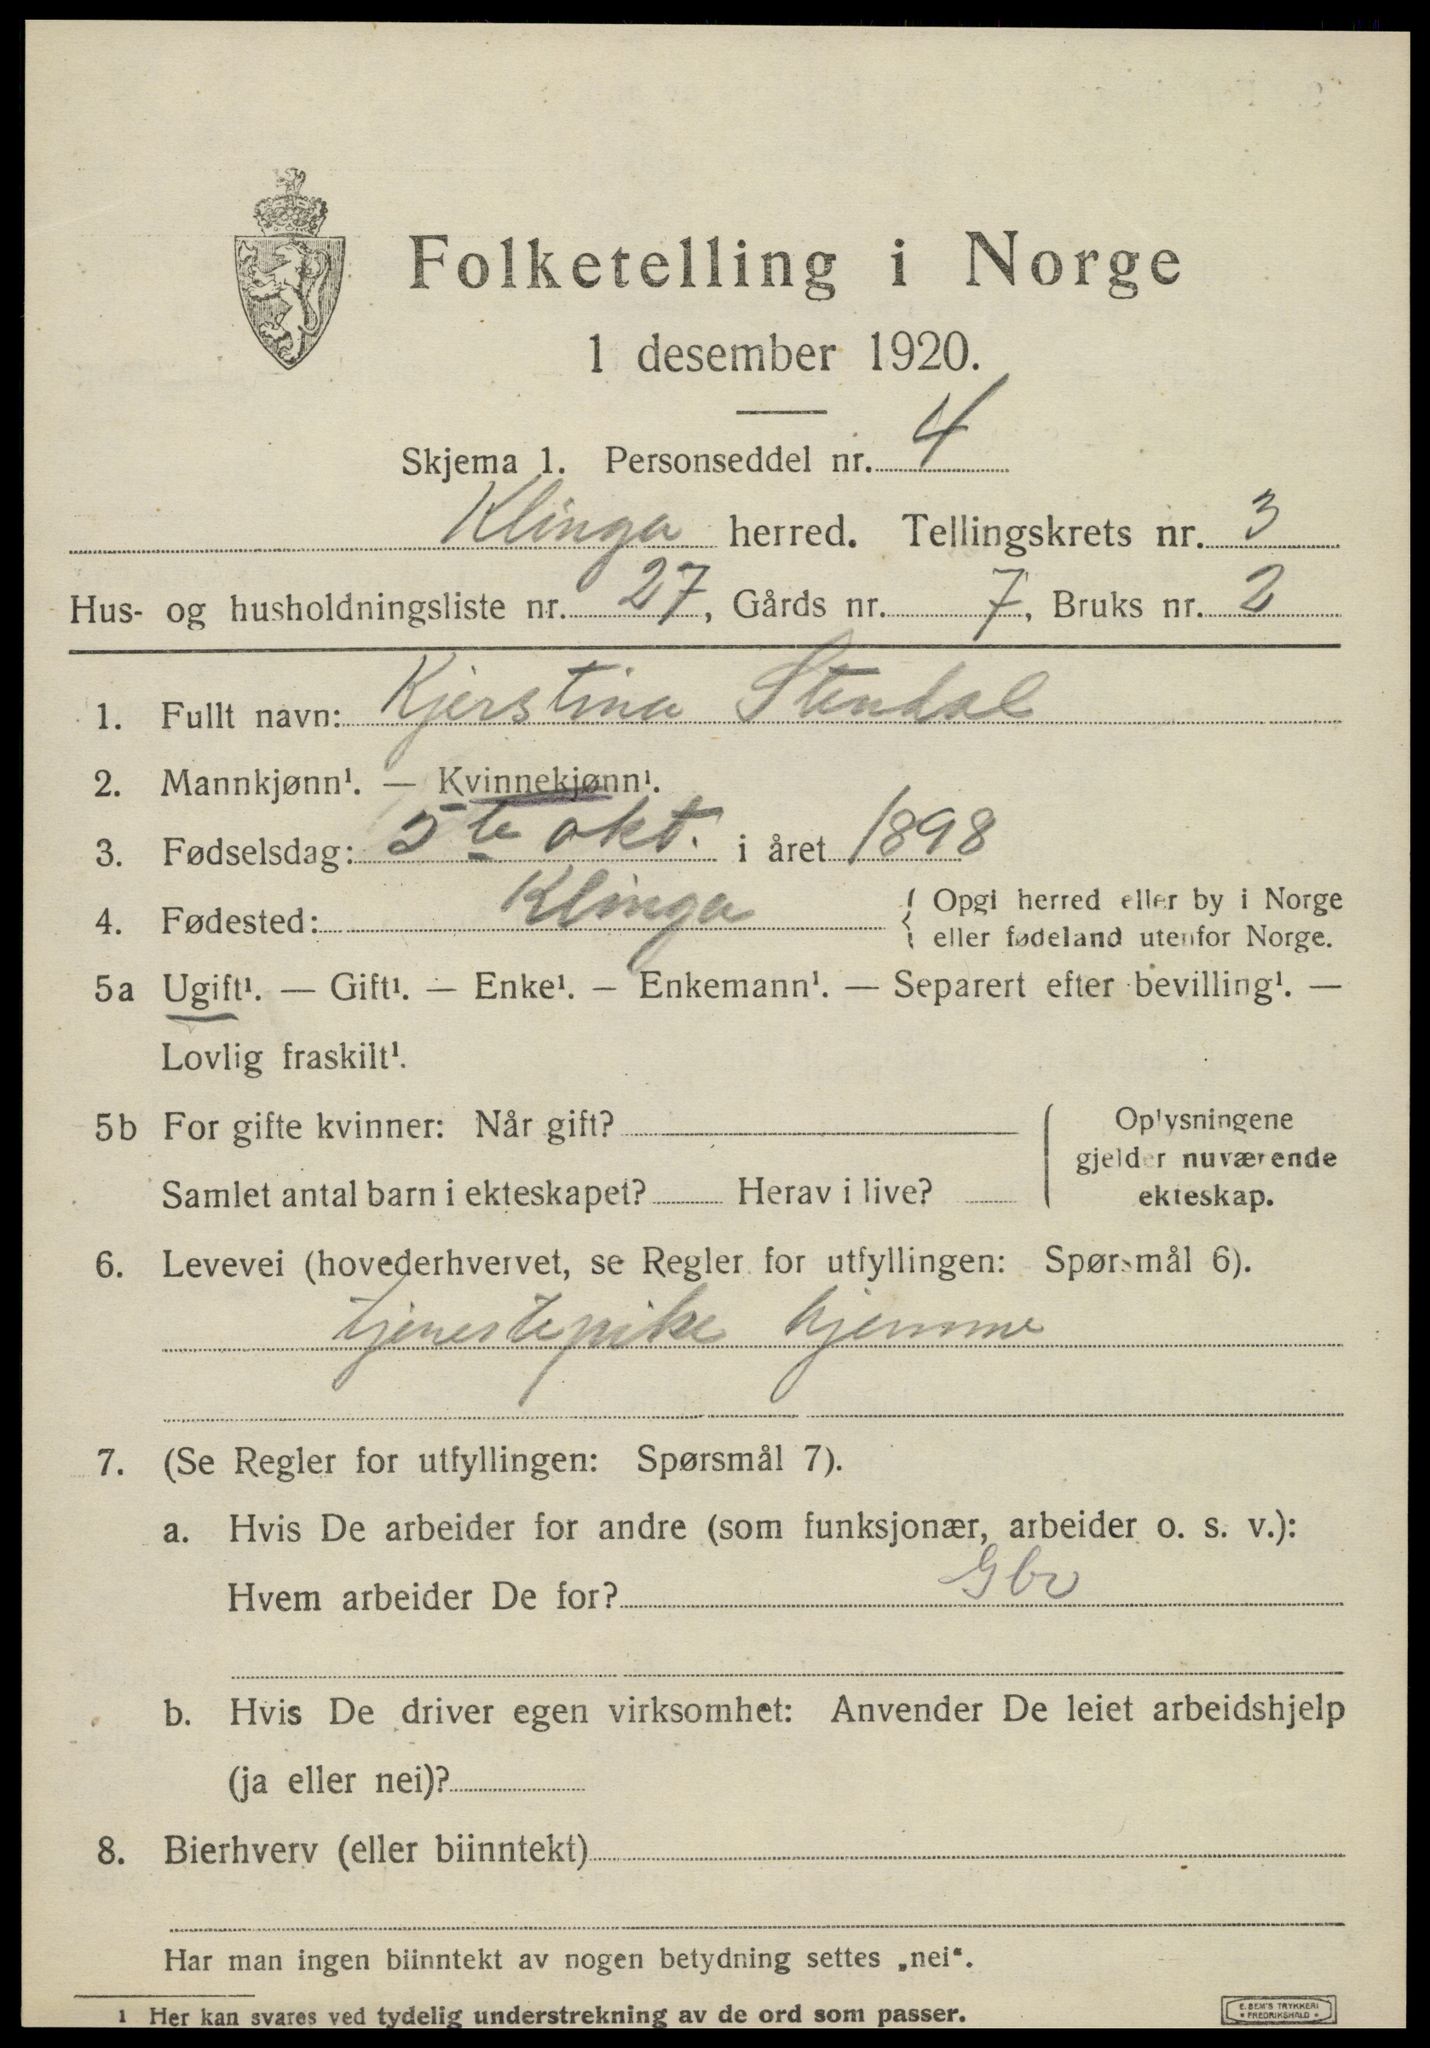 Folketelling i Norge
1 desember 1920.
Skjema 1. Personseddel nr. 4
Klinga herred. Tellingskrets nr. 3
Hus- og husholdningsliste nr. 27, Gårds nr. 7, Bruks nr. 2
1. Fullt navn: Kjerstina Stendal
2. Mannkjønn¹. — Kvinnekjønn¹.
3. Fødselsdag: 5te okt. i året 1898
4. Fødested: Klinga { Opgi herred eller by i Norge
eller fødeland utenfor Norge.
5a Ugift¹. — Gift¹. — Enke¹. — Enkemann¹. — Separert efter bevilling¹. —
Lovlig fraskilt¹.
5b For gifte kvinner: Når gift?
Samlet antal barn i ekteskapet? Herav i live?
Oplysningene
gjelder nuværende
ekteskap.
6. Levevei (hovederhvervet, se Regler for utfyllingen: Spørsmål 6).
tjenestepike hjemme
7. (Se Regler for utfyllingen: Spørsmål 7).
a. Hvis De arbeider for andre (som funksjonær, arbeider o. s. v.):
Hvem arbeider De for? Gbr
b. Hvis De driver egen virksomhet: Anvender De leiet arbeidshjelp
(ja eller nei)?
8. Bierhverv (eller biinntekt)
Har man ingen biinntekt av nogen betydning settes „nei“.
1 Her kan svares ved tydelig understrekning av de ord som passer.
E. SEM'S TRYKKERI
• FREDRIKSHALD •